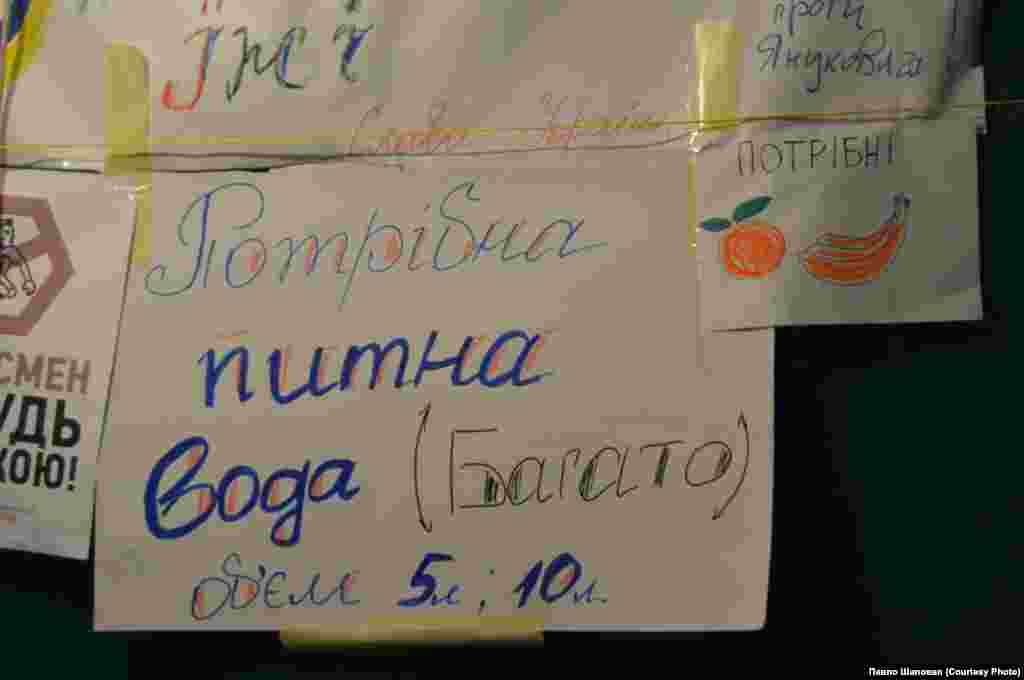 їжї
Слава Україні
проти
Януковича
ПОТРІБНІ
Потрібна
питна
вода (Багато)
об'єм 5л; 10л.
СМЕН
УДЬ
КОЮ!
Павло Шаповал (Courtesy Photo)